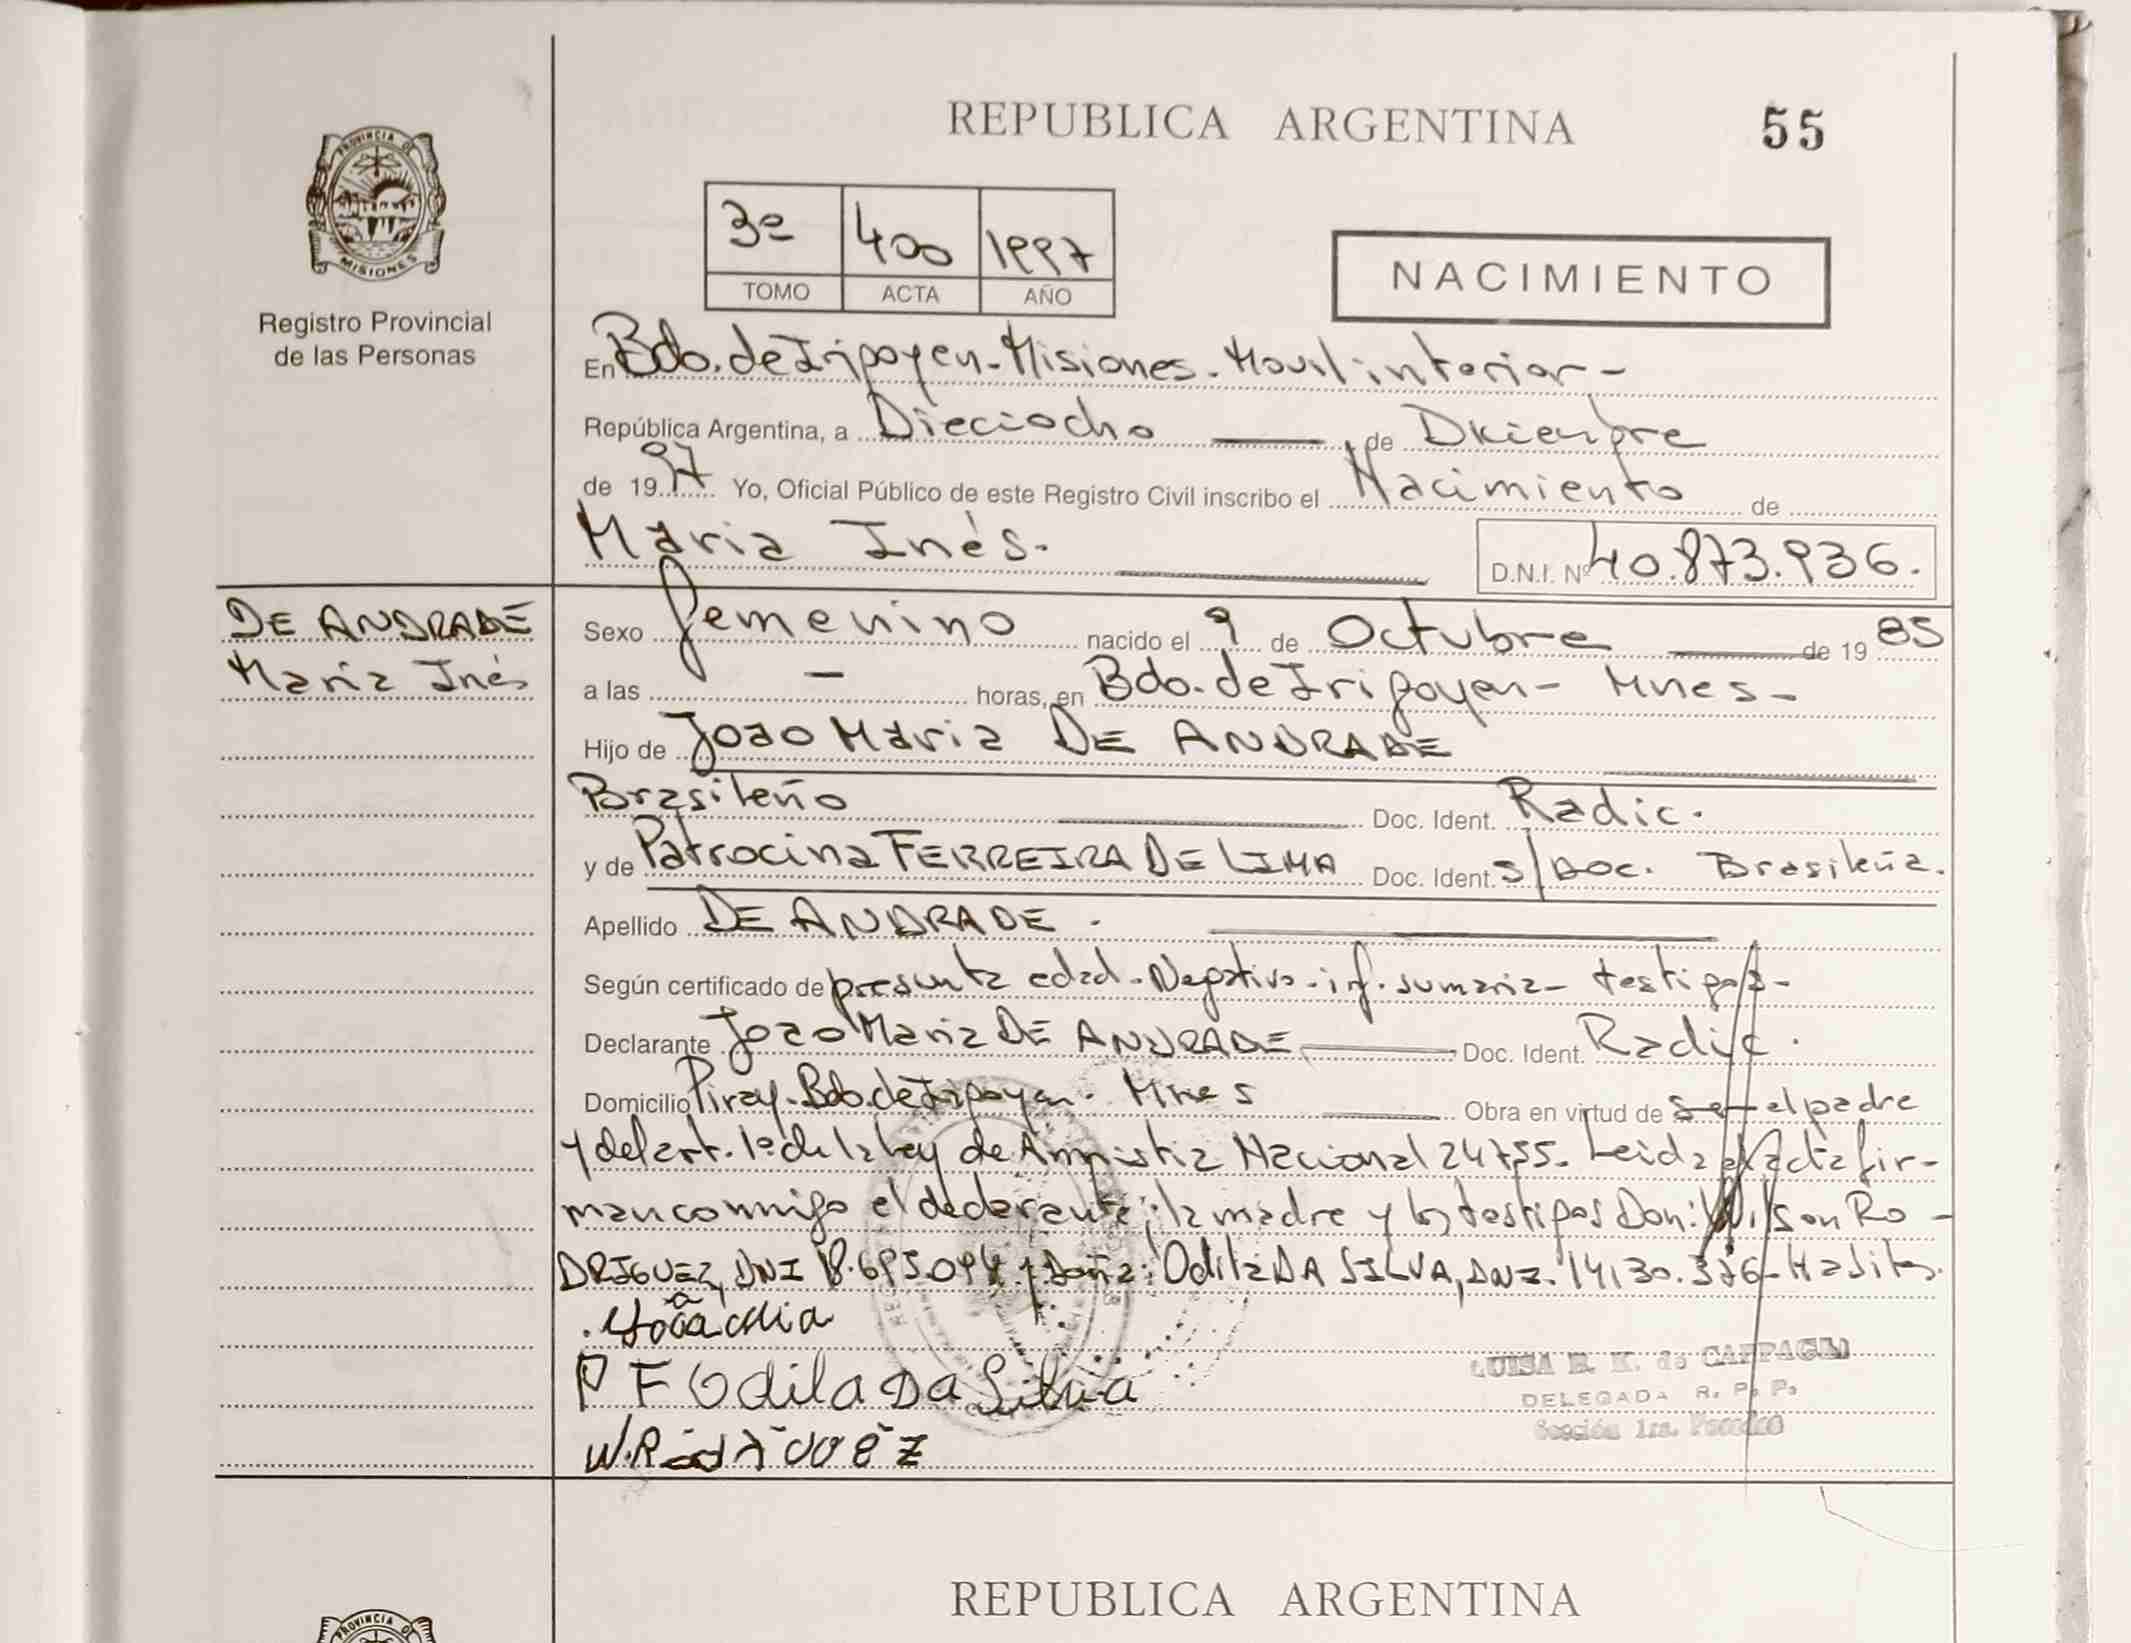 REPUBLICA ARGENTINA
55
PROVINCIA DE
MISIONES
Registro Provincial
de las Personas
3º 400 1997
TOMO ACTA AÑO
NACIMIENTO
En Bdo. de Irigoyen - Misiones - Movil interior -
República Argentina, a Dieciocho de Diciembre
de 1997 Yo, Oficial Público de este Registro Civil inscribo el Nacimiento de
Maria Inés.
D.N.I. Nº 40.873.936.
DE ANDRADE
Maria Inés
Sexo femenino nacido el 9 de Octubre de 1985
a las - horas, en Bdo. de Irigoyen - Mnes -
Hijo de Joao Maria DE ANDRADE
Brasileño Doc. Ident. Radic.
y de Patrocina FERREIRA DE LIMA Doc. Ident. S/Doc. Brasileña.
Apellido DE ANDRADE.
Según certificado de presunta edad - Negativo - inf. sumaria - testigos -
Declarante Joao Maria DE ANDRADE Doc. Ident. Radic.
Domicilio Piray - Bdo. de Irigoyen - Mnes Obra en virtud de ser el padre
y del art. 1º de la Ley de Amnistia Nacional 24755. Leida el acta fir-
man conmigo el declarante, la madre y los testigos Don: Wilson RO-
DRIGUEZ, DNI 18.695.094 y Doña: Odila DA SILVA, DNI. 14.130.376
P F Odila Da Silvia
LUISA
DELEGADA R. P. P.
Sección 1ra.
REPUBLICA ARGENTINA
PROVINCIA DE